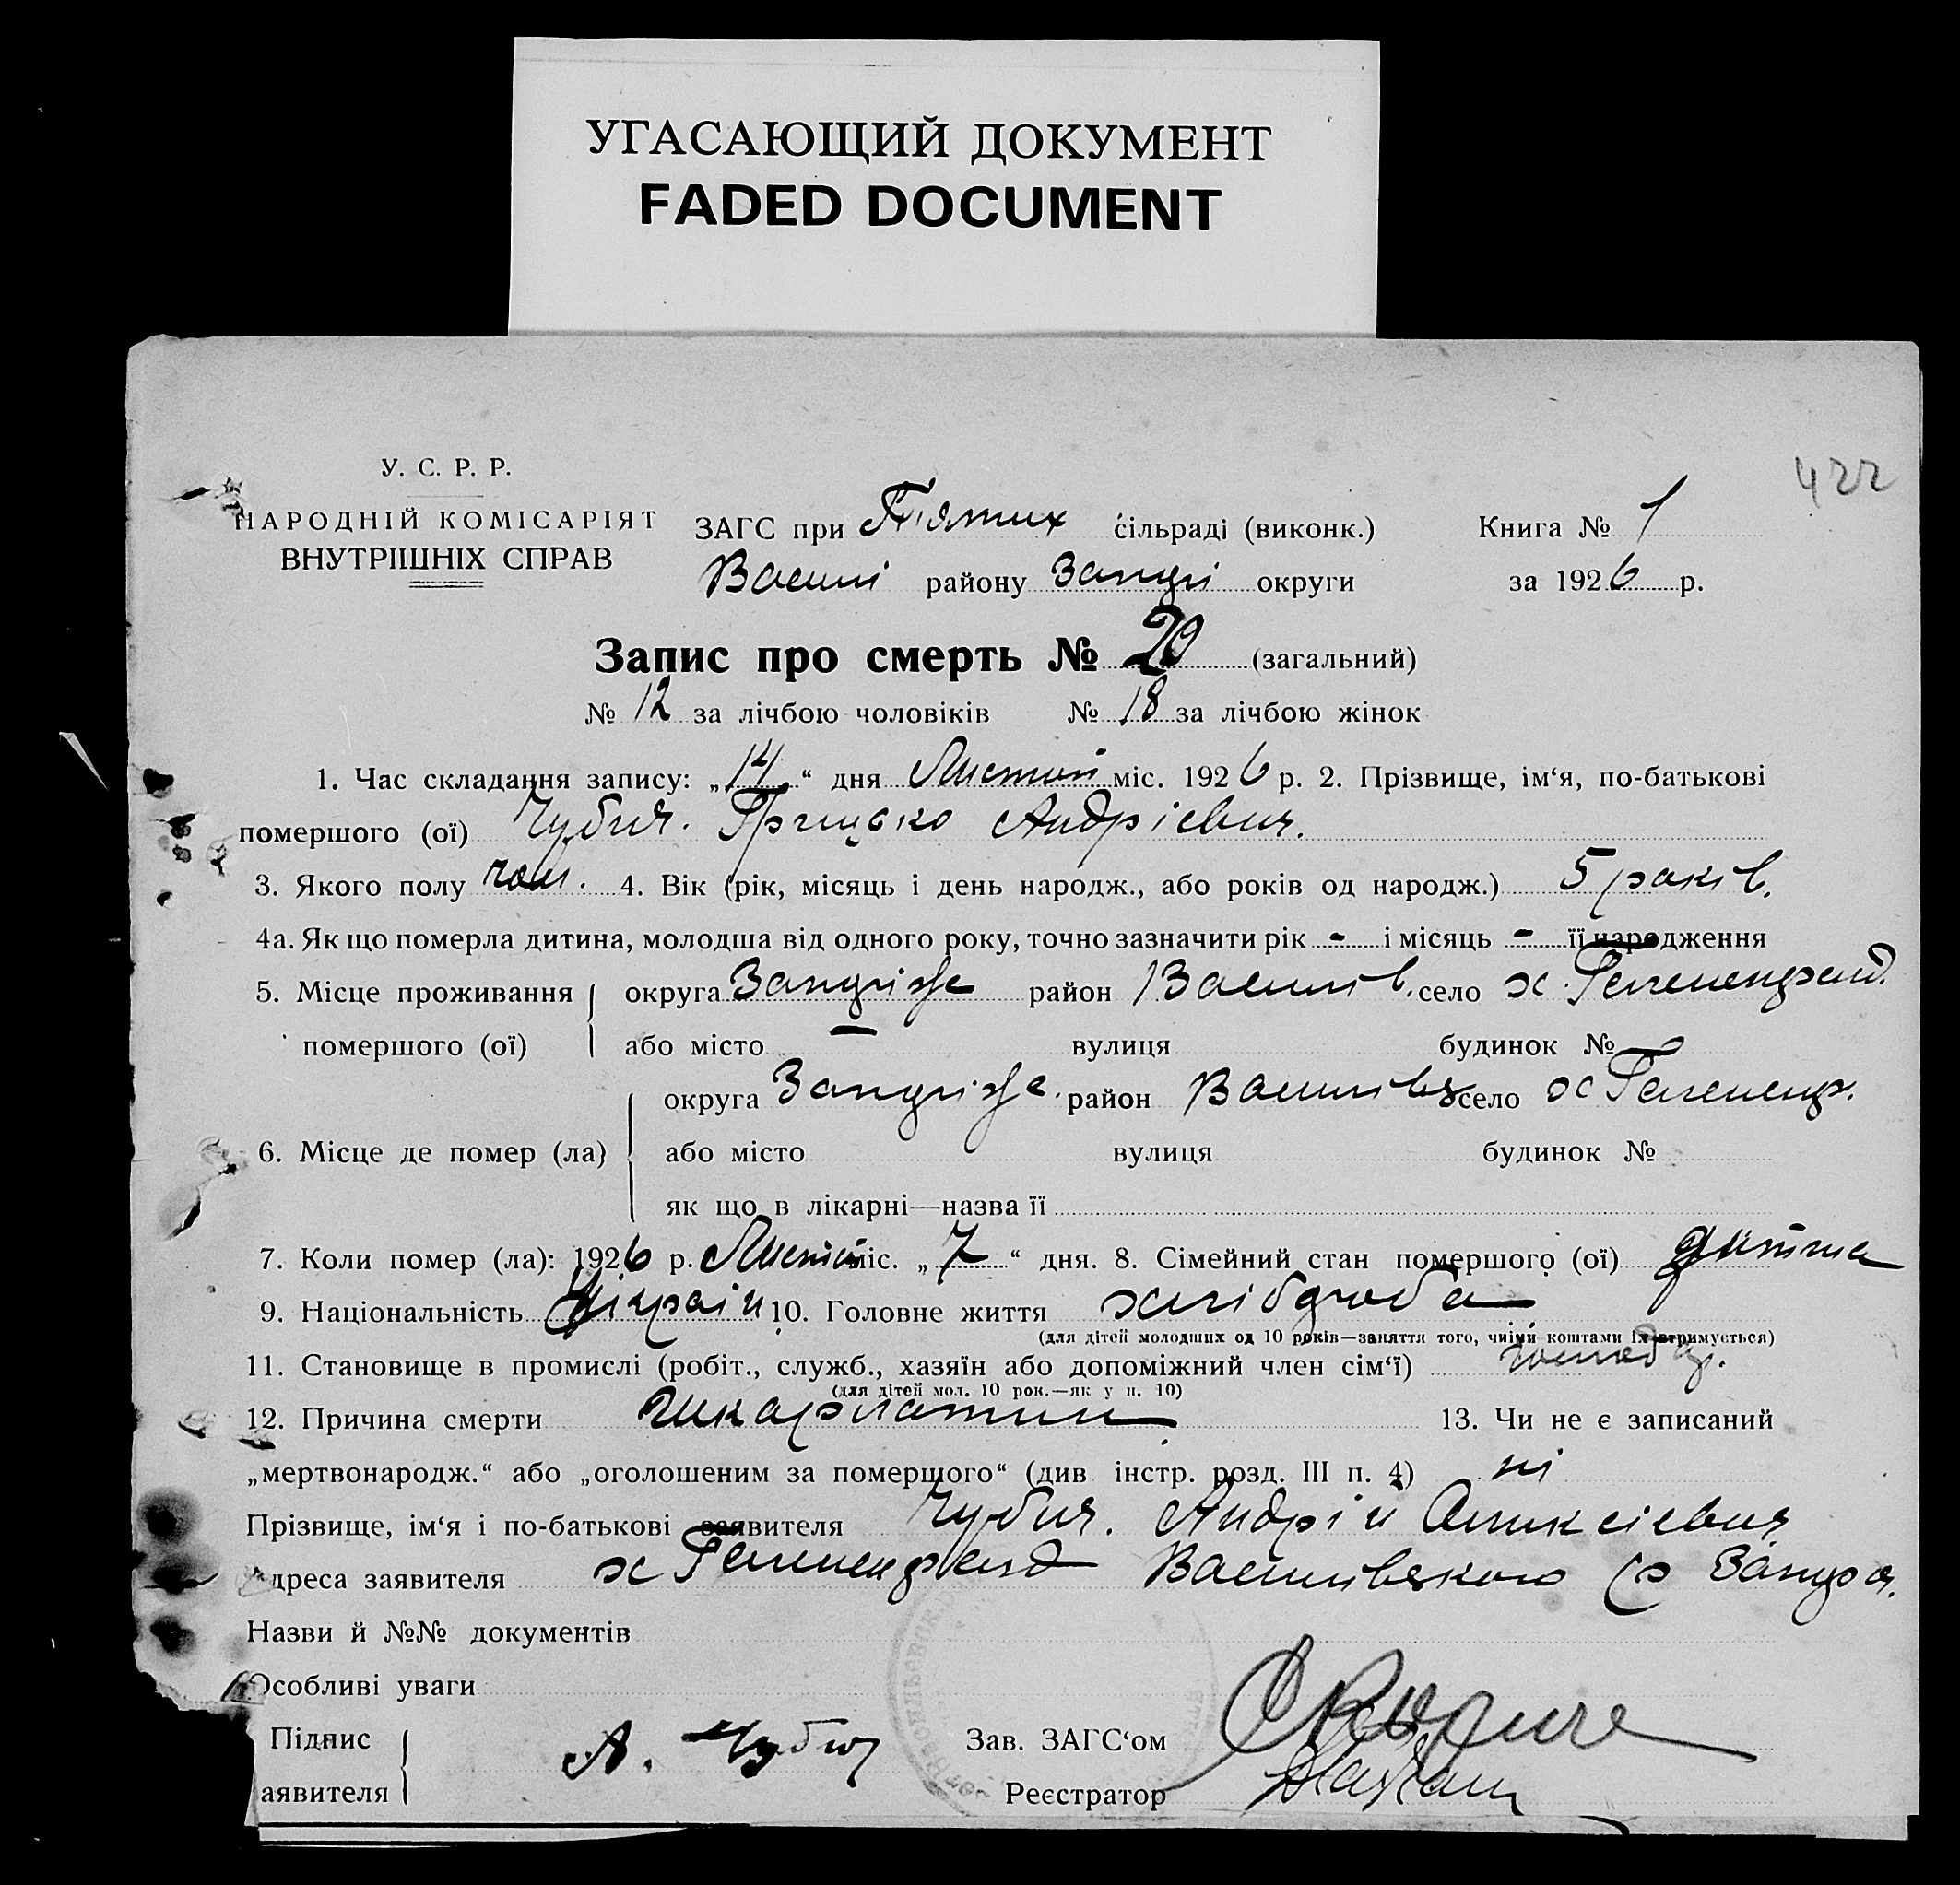 УГАСАЮЩИЙ ДОКУМЕНТ
FADED DOCUMENT
422
У. С. Р. Р.
НАРОДНІЙ КОМІСАРІЯТ
ВНУТРІШНІХ СПРАВ
ЗАГС при П'ятих сільраді (виконк.) Книга № 1
Васили району Запорі округи за 1926 р.
Запис про смерть № 20 (загальний)
№ 12 за лічбою чоловіків № 18 за лічбою жінок
1. Час складання запису: „14“ дня Листоп міс. 1926 р. 2. Прізвище, ім‘я, по-батькові
помершого (ої) Чубич. Грицько Андрієвич.
3. Якого полу чол. 4. Вік (рік, місяць і день народж., або років од народж.) 5 років.
4а. Як що померла дитина, молодша від одного року, точно зазначити рік - і місяць - її народження
5. Місце проживання округа Запоріж район Василів. село х.
помершого (ої) або місто — вулиця будинок №
округа Запоріж. район Василівс село х
6. Місце де помер (ла) або місто вулиця будинок №
як що в лікарні—назва її
7. Коли помер (ла): 1926 р. Листоп міс. „7“ дня. 8. Сімейний стан помершого (ої) дитина
9. Національність Україн 10. Головне життя хлібороба
(для дітей молодших од 10 років—заняття того, чиїми коштами їх утримується)
11. Становище в промислі (робіт., служб., хазяїн або допоміжний член сім‘ї)
(для дітей мол. 10 рок.—як у п. 10)
12. Причина смерти шкарлатини 13. Чи не є записаний
„мертвонародж.“ або „оголошеним за помершого“ (див інстр. розд. III п. 4) ні
Прізвище, ім‘я і по-батькові заявителя Чубич. Андрій Оликсієвич
Адреса заявителя х Василівського р Запор
Назви й №№ документів
Особливі уваги
Підпис А. Чубич Зав. ЗАГС‘ом
аявителя Реєстратор